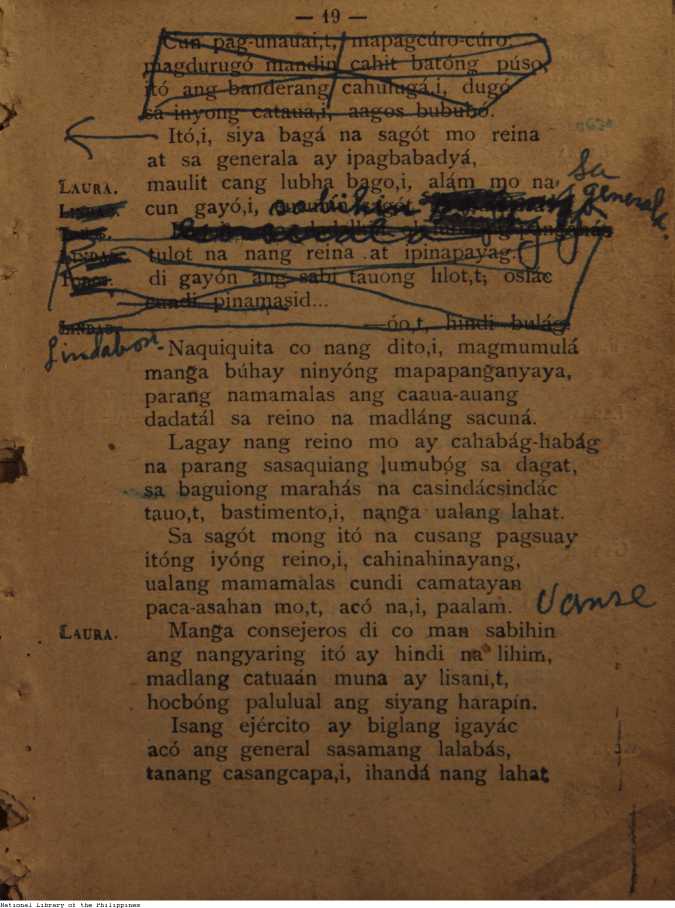 — 49 —
Cun pag-unauai,t, mapagcúro-cúro:
magdurugó mandin cahit batóng púso,
itó ang banderang cahulugá,i, dugó
sa inyong cataua,i, aagos bububó.
Itó,i, siya bagá na sagót mo reina
at sa generala ay ipagbabadyá,
LAURA. maulit cang lubha bago,i, alám mo na
sa generala.
cun gayó,i, sabihin
tulot na nang reina at ipinapayag.
di gayón ang sabi tauong lilot,t; oslac
cundi pinamasid...
LINDAB. —óo,t, hindi bulág.
Lindabon - Naquiquita co nang dito,i, magmumulá
manga búhay ninyóng mapapanganyaya,
parang namamalas ang caaua-auang
dadatál sa reino na madláng sacuná.
Lagay nang reino mo ay cahabág-habág
na parang sasaquiang lumubóg sa dagat,
sa baguiong marahás na casindácsindác
tauo,t, bastimento,i, nanga ualang lahat.
Sa sagót mong itó na cusang pagsuay
itóng iyóng reino,i, cahinahinayang,
ualang mamamalas cundi camatayan
paca-asahan mo,t, acó na,i, paalam. Vanse
LAURA. Manga consejeros di co man sabihin
ang nangyaring itó ay hindi na lihim,
madlang catuaán muna ay lisani,t,
hocbóng palulual ang siyang harapín.
Isang ejército ay biglang igayác
acó ang general sasamang lalabás,
tanang casangcapa,i, ihandá nang lahat
National Library of the Philippines